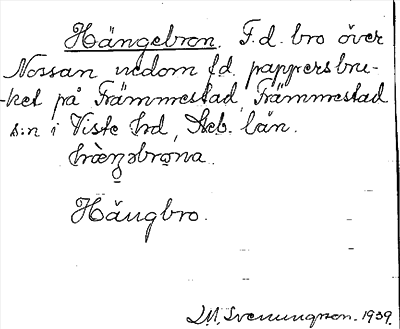 Hängebron. F.d. bro över
Nossan nedom f.d. pappersbru-
-ket på Främmestad, Främmestad
s:n i Viste hrd, Skb. län.
Hängbro.
S.M. Svenungson. 1939.